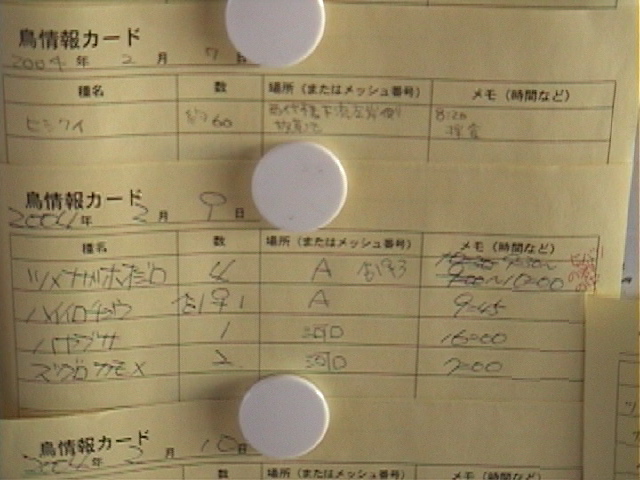 鳥情報カード
2004年 2月 7日
種名 数 場所（またはメッシュ番号） メモ（時間など）
ヒシクイ 約60 8:20
採食
鳥情報カード
2004年 2月 9日
種名 数 場所（またはメッシュ番号） メモ（時間など）
ツメナガホオジロ 4 A 9:00〜10:00
ハイイロチュウ ♂1♀1 A 9:45
ハヤブサ 1 河口 16:00
ズグロカモメ 2 河口 7:00
鳥情報カード
2004年 2月 10日
種名 数 場所（またはメッシュ番号） メモ（時間など）